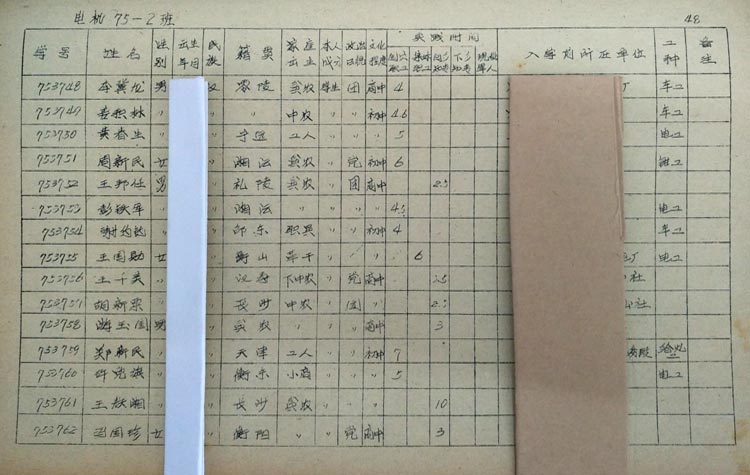 电机75-2班 48
学号 姓名 性别 出生年月 民族 籍贯 家庭出身 本人成分 政治面貌 文化程度 实践时间 入学前所在单位 工种 备注
753748 李冀龙 男 零陵 贫农 学生 团 高中 4 厂 车工
753749 〃 〃 〃 中农 〃 〃 初中 4.6 车工
753750 黄春生 〃 〃 宁远 工人 〃 〃 〃 5 电工
753751 周新民 女 〃 湘潭 贫农 〃 党 初中 6 钳工
753752 王邦任 男 〃 礼陵 贫农 〃 团 高中 2.5
753753 彭铁军 〃 〃 湘潭 〃 〃 〃 〃 4.5 电工
753754 〃 〃 邵东 职员 〃 〃 初中 4 车工
753755 王国勋 女 〃 衡山 革干 〃 〃 〃 6 厂 电工
753756 王千英 〃 〃 汉寿 下中农 〃 党 高中 2.5 社
753757 胡新 〃 〃 长沙 中农 〃 团 〃 2.5 社
753758 游玉国 男 〃 〃 贫农 〃 〃 高中 3
753759 郑新民 〃 〃 天津 工人 〃 〃 初中 7
753760 许 〃 〃 衡东 小商 〃 〃 〃 5 电工
753761 王铁湘 〃 〃 长沙 贫农 〃 〃 〃 10
753762 国珍 女 〃 衡阳 〃 〃 党 高中 3